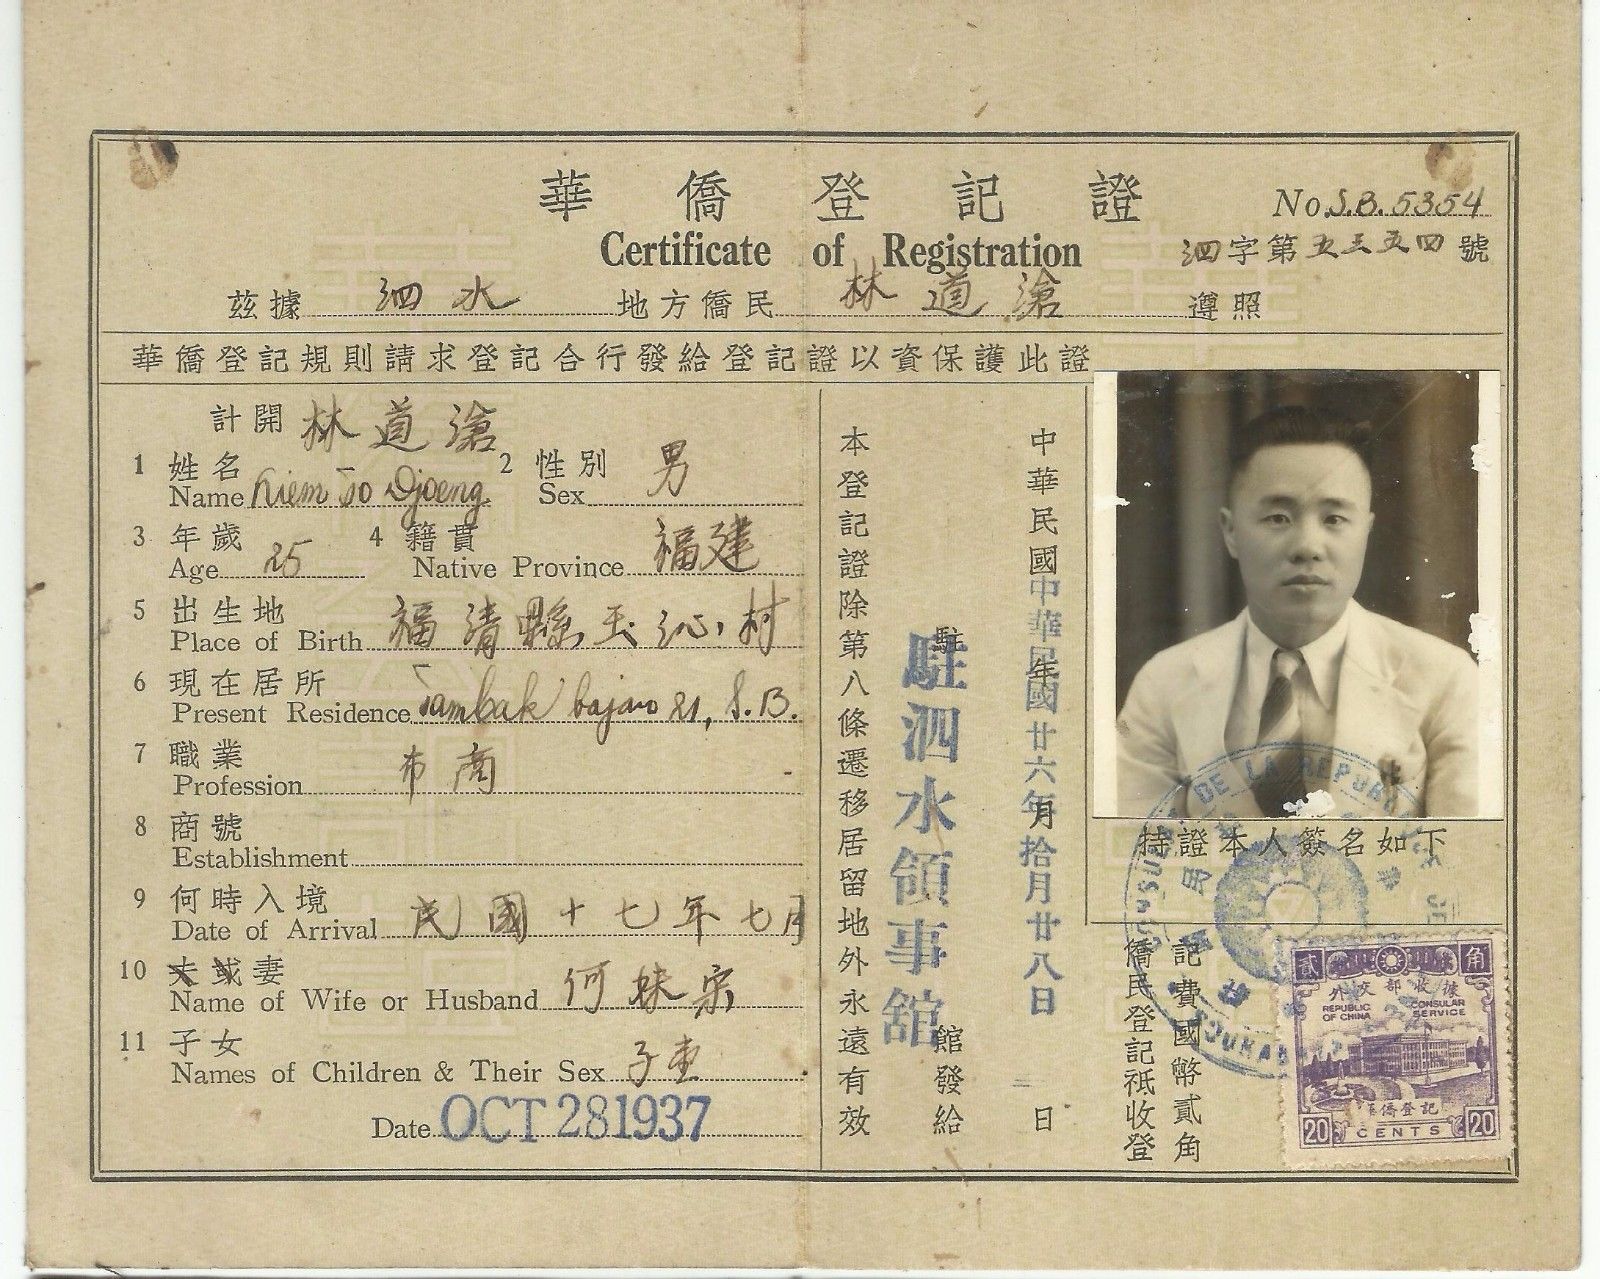 華僑登記證
No. S.B. 5354
Certificate of Registration
泗字第五三五四號
茲據 泗水 地方僑民 林道滄 遵照
華僑登記規則請求登記合行發給登記證以資保護此證
計開 林道滄
1 姓名 2 性別 男
Name Djoeng Sex
3 年歲 4 籍貫
Age 25 Native Province 福建
5 出生地
Place of Birth 福清縣玉沁村
6 現在居所
Present Residence Tambak bajan 21, S.B.
7 職業
Profession 布商
8 商號
Establishment
9 何時入境
Date of Arrival 民國十七年七月
10 夫或妻
Name of Wife or Husband 何妹宗
11 子女
Names of Children & Their Sex 子壹
Date OCT 28 1937
本登記證除第八條遷移居留地外永遠有效
駐 館發給
駐泗水領事舘
中華民國 年 月 日
中華民國廿六年拾月廿八日
持證本人簽名如下
僑民登記祗收登
記費國幣貳角
CONSULAT DE LA REPUBLIQUE
貳 角
外交部收據
REPUBLIC OF CHINA CONSULAR SERVICE
華僑登記
20 CENTS 20